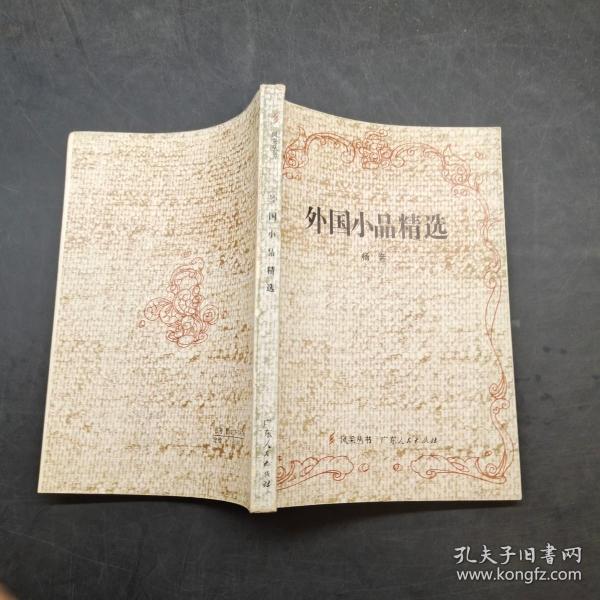 外国小品精选
杨奔
风采丛书 广东人民出版社
风采丛书
外国小品精选
广东人民出版社
孔夫子旧书网
www.kongfz.com